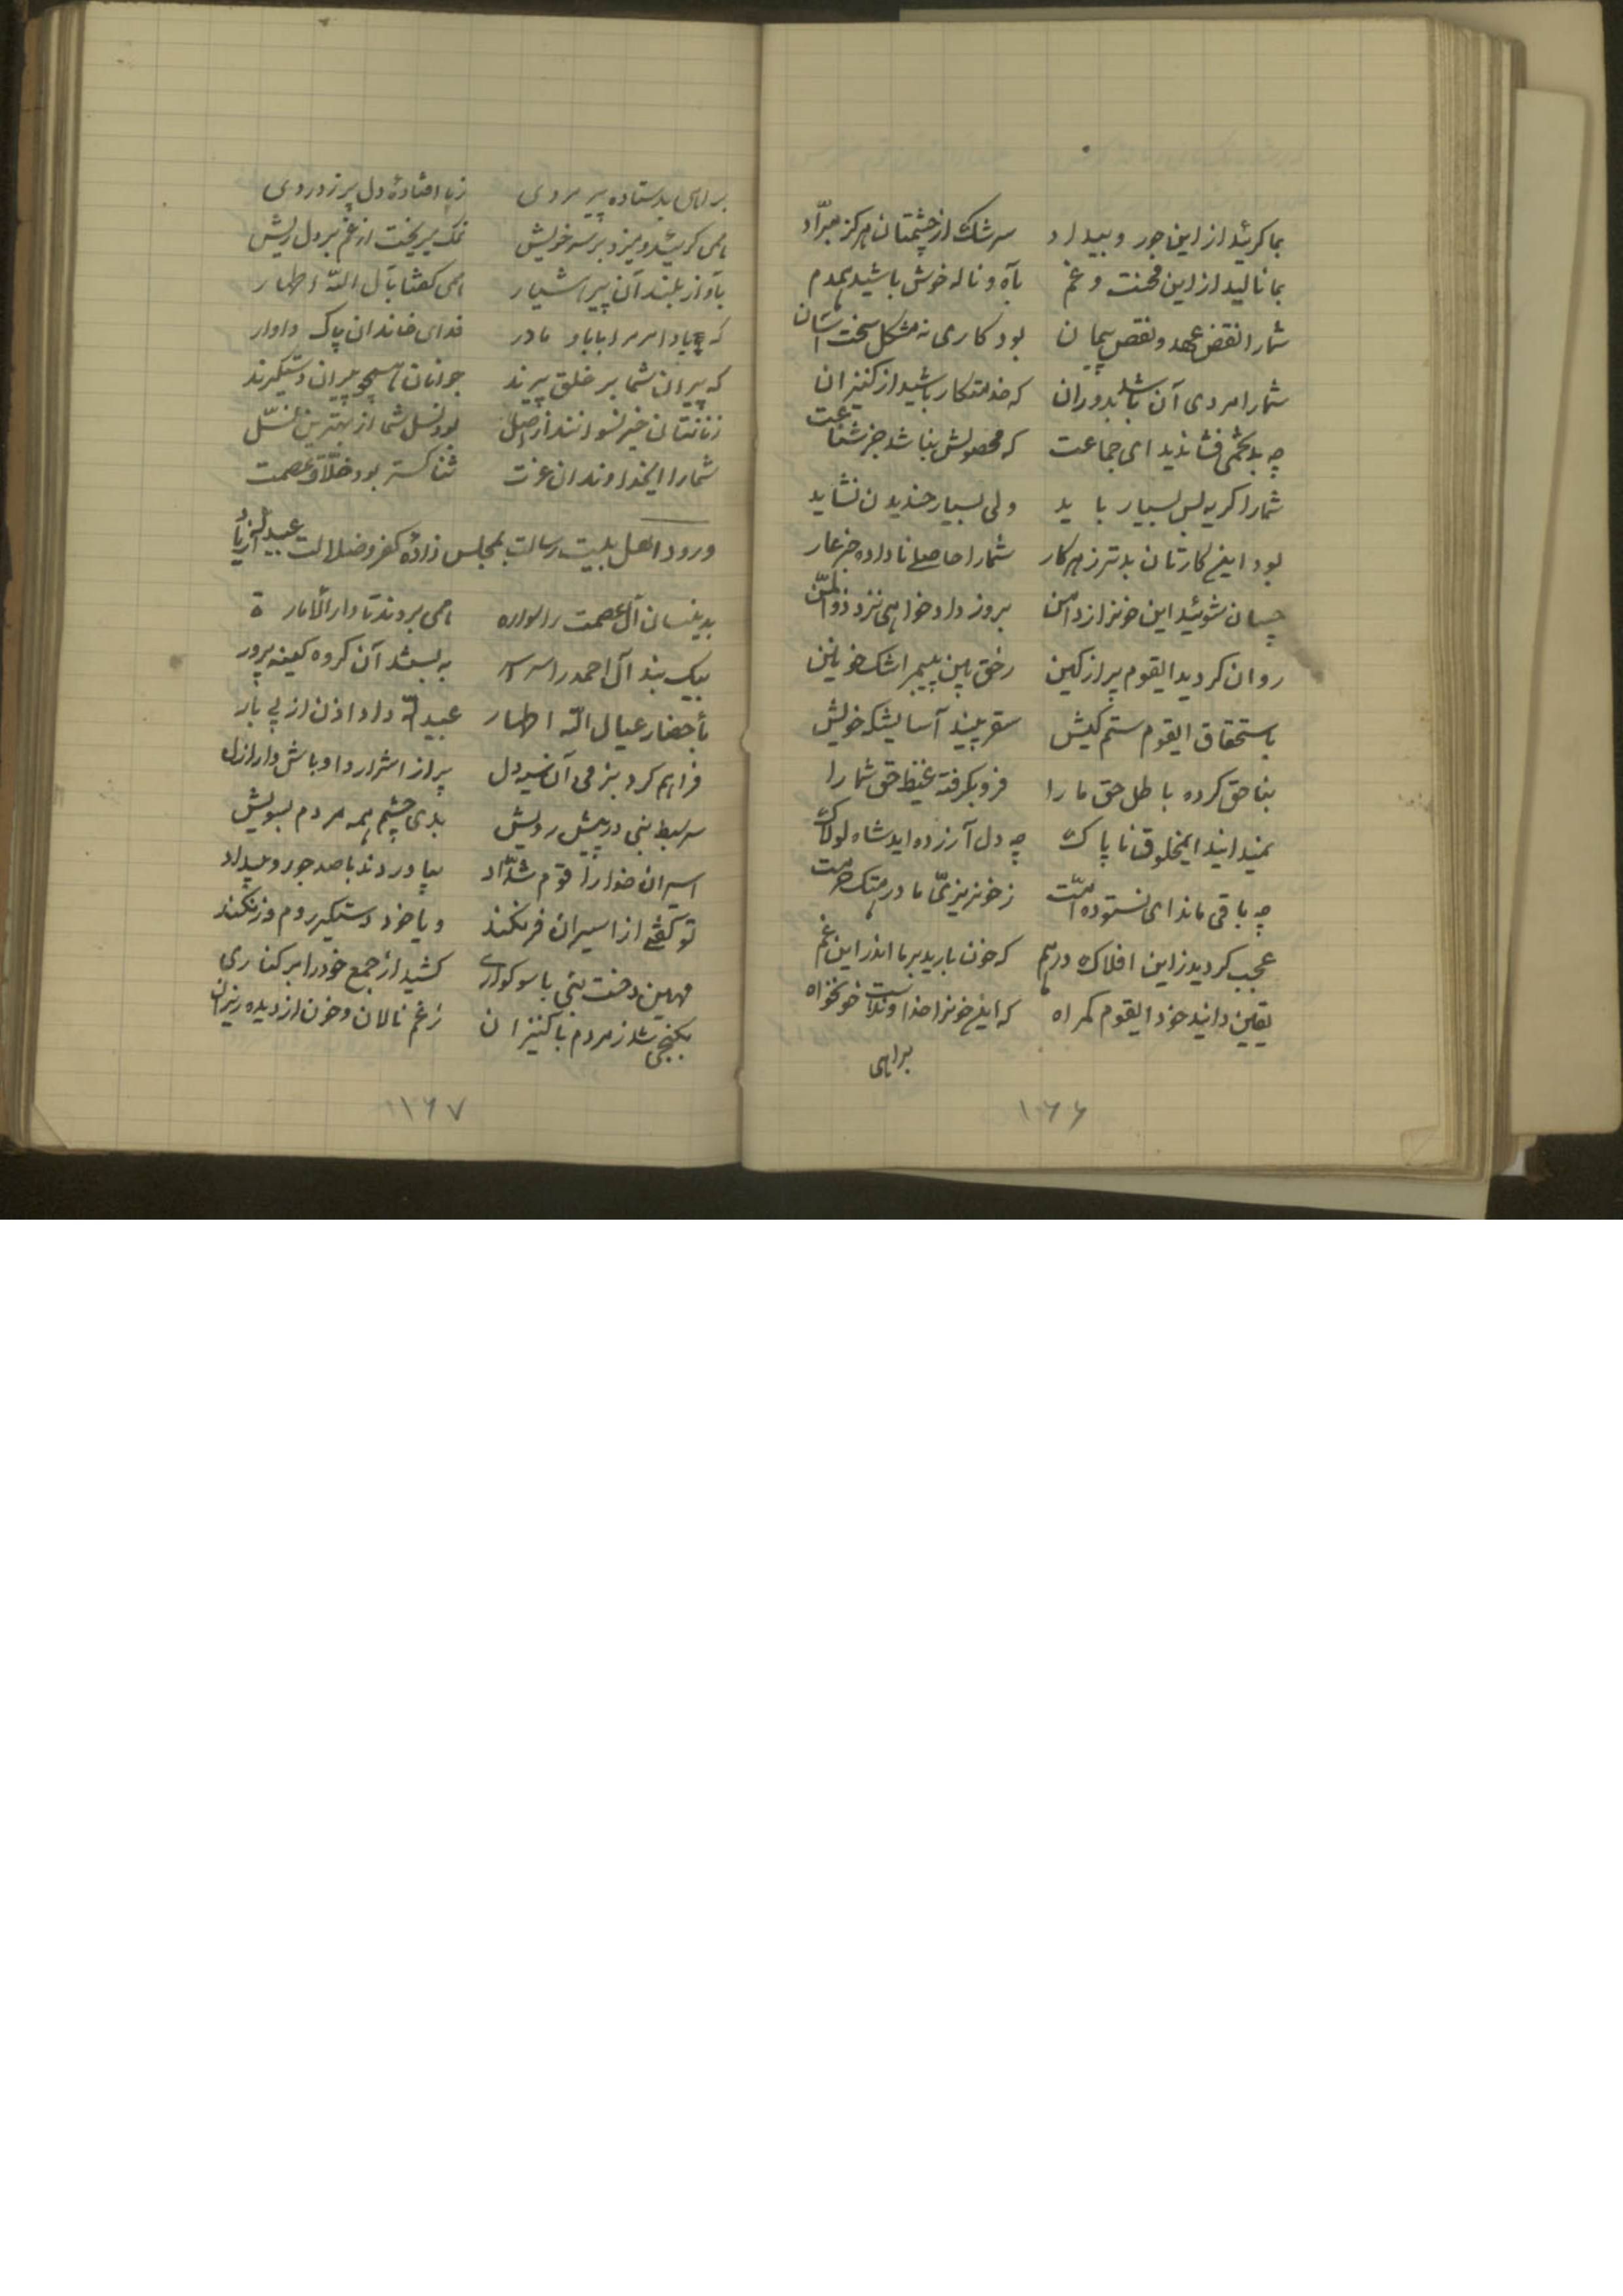 بما کرئید از این جور و بیداد سرشک از چشمتان هرگز مبرّاد
بما نالید از این محنت و غم بآه و ناله خوش باشید همدم
شما را نقض عهد و نقص پیمان بود کاری نه مشکل سخت آسان
شما را مردی آن باشد بدوران که خدمتکار باشید از کنیزان
چه بد تخمی فشاندید ای جماعت که محصولش نباشد جز شناعت
شما را گریه بس بسیار باید ولی بسیار خندیدن نشاید
بود اینکارتان بدتر ز هر کار شما را حاصلی ناداده جز عار
چسان شوئید این خونرا ز دامن بروز دادخواهی نزد ذوالمن
روان کردید ایقوم پر از کین رخ پیمبر اشک خونین
باستحقاق ایقوم ستم کیش سقر بیند آسایشگه خویش
بناحق کرده باطل حق ما را فرو بگرفته غیظ حق شما را
نمیدانید ایمخلوق ناپاک چه دل آزرده اید شاه لولاک
چه باقی ماند ای نستوده امّت ز خونریزیّ ما در هتک حرمت
عجب کردید ز این افلاک درهم که خون بارید بر ما اندر این غم
یقین دانید خود ایقوم گمراه که این خونرا خداوند است خونخواه
براهی
۱۶۶
براهی بد ستاده پیر مردی ز پا افتادهٔ دل پر ز دردی
همی گریید و میزد بر سر خویش نمک میریخت از غم بر دل ریش
بآواز بلند آن پیر هشیار همی گفتا بآل الله اطهار
که بادا مر مرا باباو مادر فدای خاندان پاک داور
که پیران شما بر خلق پیرند جوانان همچو پیران دستگیرند
زنانتان خیر نسوانند از اصل بود نسل شما از بهترین نسل
شما را ایخداوندان عزت ثنا گستر بود خلّاق عصمت
ورود اهل بیت رسالت بمجلس زادهٔ کفر و ضلالت عبیدالله زیاد
بدینسان آل عصمت را همی بردند تا دار الأماره
بیک بند آل احمد را سراسر به بستند آن گروه کینه پرور
بأحضار عیال الله اطهار عبیدالله داد اذن از پی بار
فراهم کرد بزمی آن سیه دل پر از اشرار و اوباش و اراذل
سر سبط نبی در پیش رویش بدی چشم همه مردم بسویش
اسیران خدا را قوم شدّاد بیاوردند با صد جور و بیداد
تو گفتی از اسیران فرنگند و یا خود دستگیر روم و زنگند
مهین دخت نبی با سوگواری کشید از جمع خود را بر کناری
بکنجی شد ز مردم با کنیزان ز غم نالان و خون از دیده ریزان
۱۶۷